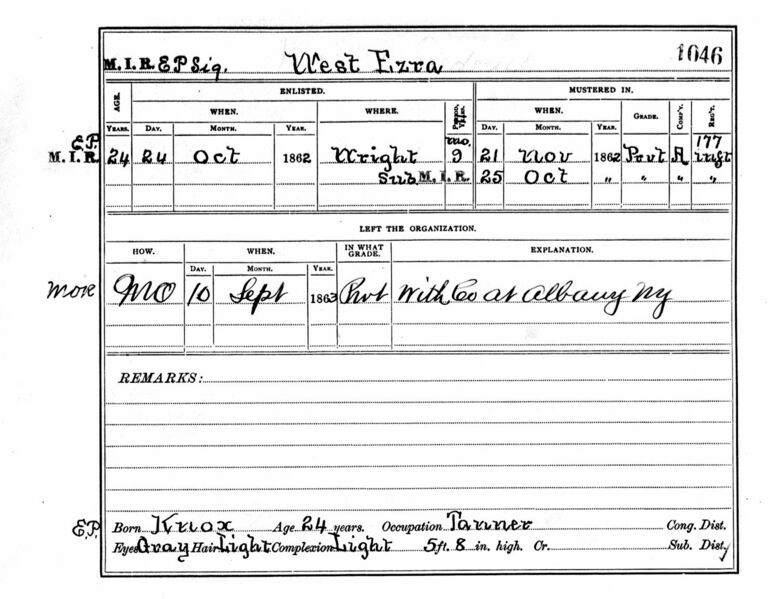 M. I. R. E P Sig. West Ezra 1046
AGE. ENLISTED. MUSTERED IN.
YEARS. WHEN. WHERE. Period, Years. WHEN. GRADE. COMP'Y. REG'T.
DAY. MONTH. YEAR. DAY. MONTH. YEAR.
E.P. mo. 177
M. I. R. 24 24 Oct 1862 Wright 9 21 Nov 1862 Pvt A inft
Sub M. I. R. 25 Oct " " " "
LEFT THE ORGANIZATION.
HOW. WHEN. IN WHAT GRADE. EXPLANATION.
DAY. MONTH. YEAR.
MOR MO 10 Sept 1863 Pvt With Co at Albany Ny
REMARKS:
E.P. Born Knox Age 24 years. Occupation Tanner Cong. Dist.
Eyes Gray Hair Light Complexion Light 5 ft. 8 in. high. Cr. Sub. Dist.